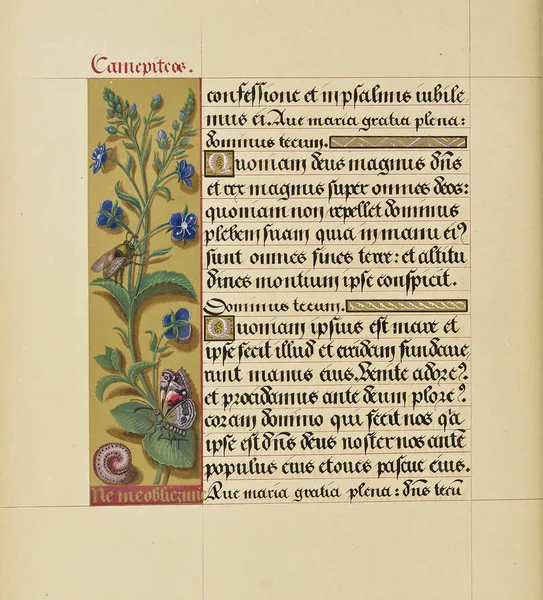 Camepiteos.
confessione et in psalmis iubile
mus ei. Aue maria gratia plena:
dominus tecum.
Quoniam deus magnus dn̄s
et rex magnus super omnes deos:
quoniam non repellet dominus
plebem suam quia in manu eiꝰ
sunt omnes fines terre: et altitu
dines montium ipse conspicit.
Dominus tecum.
Quoniam ipsius est mare et
ipse fecit illud et aridam fundaue
runt manus eius. Venite adoreꝰ.
et procidamus ante deum ploreꝰ.
coram domino qui fecit nos q̄a
ipse est dn̄s deus noster nos aute
populus eius et oues pascue eius.
Ne meobliezmie
Aue maria gratia plena: dn̄s tecū